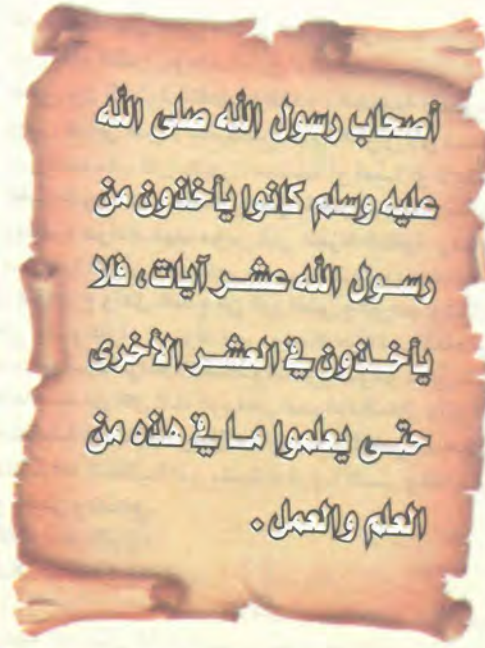 أصحاب رسول الله صلى الله
عليه وسلم كانوا يأخذون من
رسول الله عشر آيات، فلا
يأخذون في العشر الأخرى
حتى يعلموا ما في هذه من
العلم والعمل.